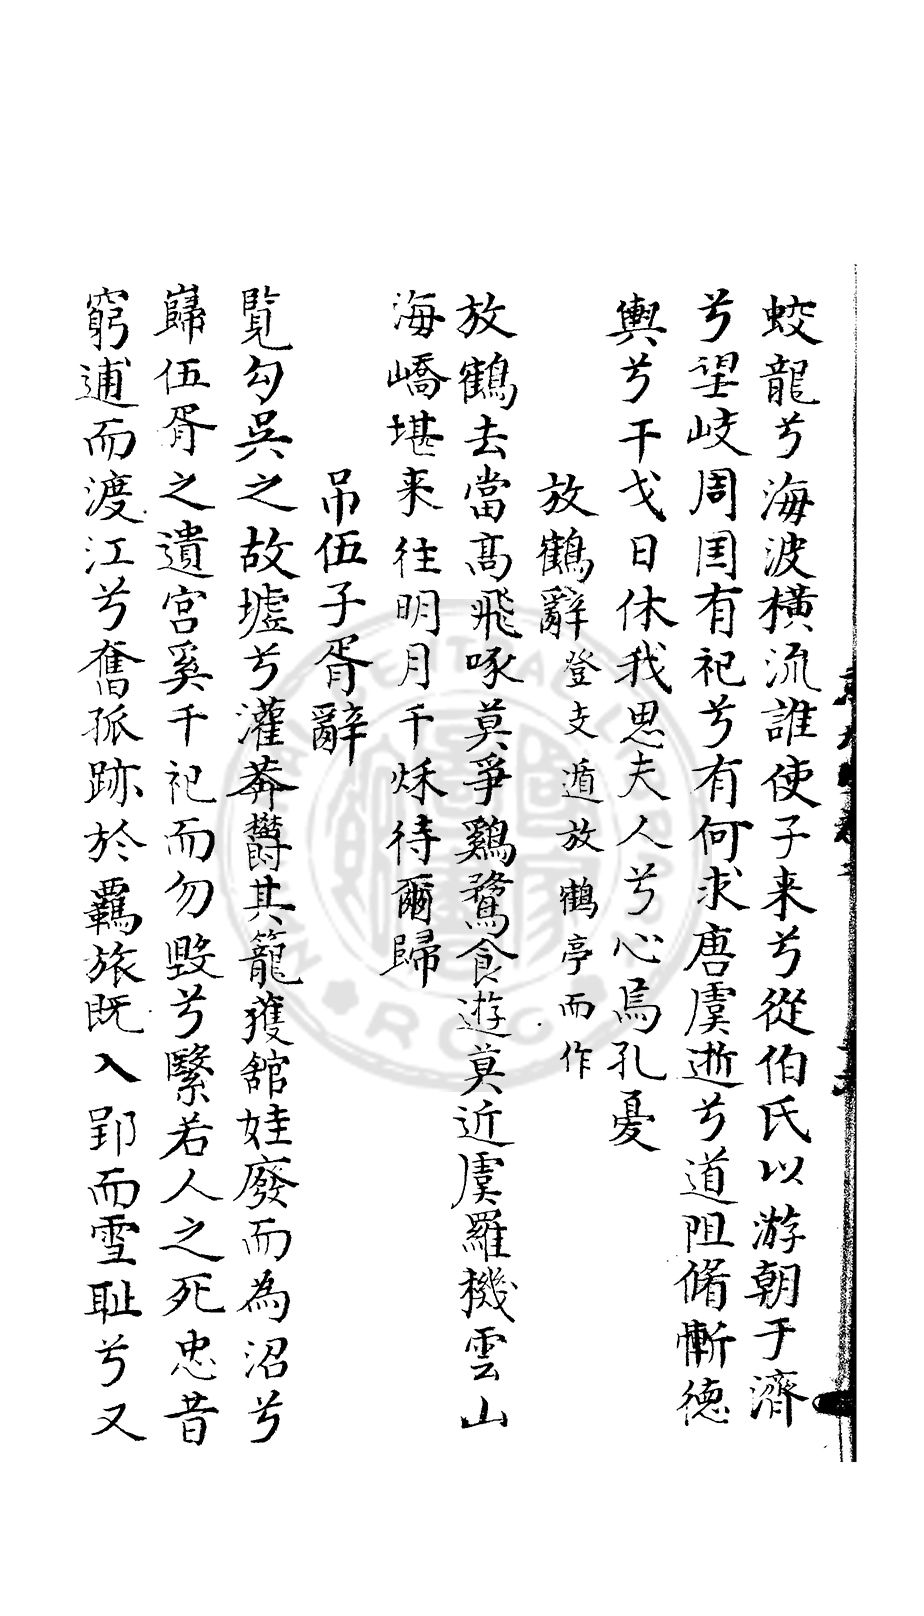 蛟龍兮海波橫流誰使子来兮從伯氏以游朝于濟
兮望岐周周有祀兮有何求唐虞逝兮道阻脩慚德
輿兮干戈日休我思夫人兮心焉孔憂
放鶴辭登支遁放鶴亭而作
放鶴去當髙飛啄莫爭鷄鶩食遊莫近虞羅機雲山
海嶠堪来往明月千秌待爾歸
吊伍子胥辭
覧勾吳之故墟兮灌莽欝其籠獲舘娃廢而為沼兮
巋伍胥之遺宮奚千祀而勿毀兮繄若人之死忠昔
窮逋而渡江兮奮孤跡於羈旅既入郢而雪耻兮又